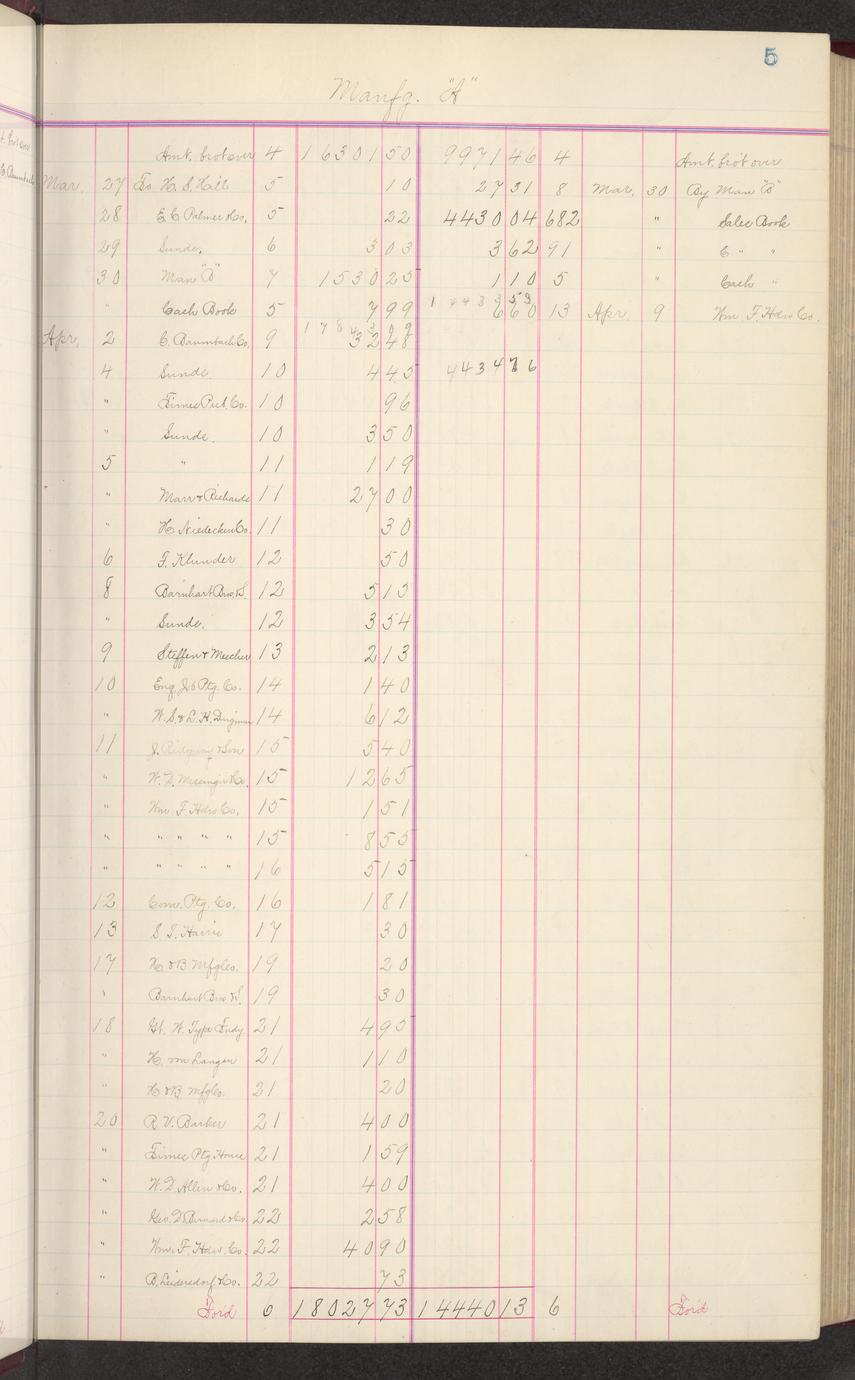 5
Manfg. "A"
Amt. brot over 4 16301 50 9971 46 4 Amt. brot over
Mar. 27 To H. S. Hall 5 10 27 31 8 Mar. 30 By Man "B"
28 E. C Palmer & Co. 5 22 4430 04 682 " Sales Book
29 Sunde, 6 3 03 3 62 91 " C " "
30 Man "B" 7 1530 25 1 10 5 " Cash "
" Cash Book 5 7 99 6 60 13 Apr. 9 Wm F. Hdw Co.
Apr. 2 C. Baumbach Co. 9 32 48
4 Sunde. 10 4 45
" Times Pub. Co. 10 96
" Sunde. 10 3 50
5 " 11 1 19
" Marr & Richards 11 27 00
" H. Niedecken Co. 11 30
6 F. Klunder 12 50
8 Barnhart Bros. & S. 12 5 15
" Sunde. 12 3 54
9 Steffen & 13 2 13
10 Eng. Job Ptg. Co. 14 1 40
" W. S. & L. H. 14 6 12
11 J. Ridgway & Son 15 5 40
" W. D. & Co. 15 12 65
" Wm. F. Hdw Co. 15 1 51
" " " " " 15 8 55
" " " " " 16 5 15
12 Com. Ptg. Co. 16 1 81
13 S. I. Harris 17 30
17 H & B Mfg Co. 19 20
" Barnhart Bros & S. 19 30
18 Gt. W. Type Fndy. 21 4 95
" H. von Langen 21 1 10
" H & B Mfg Co. 21 20
20 R. V. Barker 21 4 00
" Times Ptg. House 21 1 59
" W. D. Allen & Co. 21 4 00
" Geo. D. Barnard & Co. 22 2 58
" Wm. F. Hdw. Co. 22 40 90
" B. Leidersdorf & Co. 22 73
For'd 6 18027 73 14440 13 6 For'd